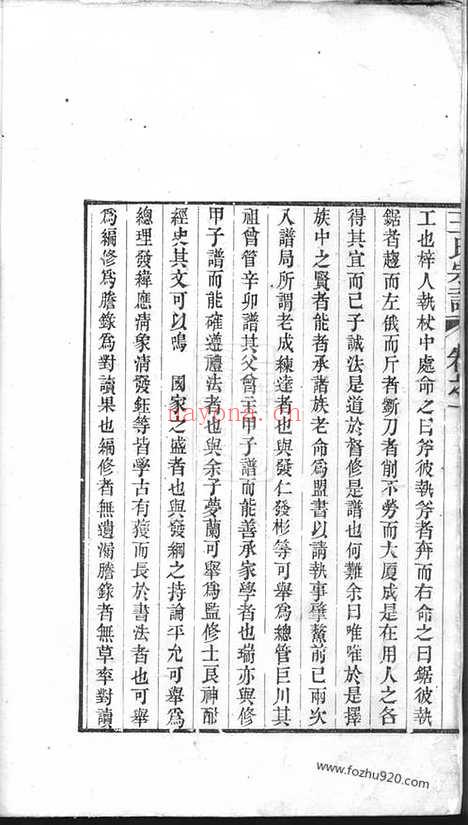 王氏宗譜 卷之一
工也梓人執杖中處命之曰斧彼執斧者奔而右命之曰鋸彼執
鋸者趨而左俄而斤者斲刀者削不勞而大厦成是在用人之各
得其宜而已子誠法是道於督修是譜也何難余曰唯唯於是擇
族中之賢者能者承諸族老命為盟書以請執事肇鰲前已兩次
入譜局所謂老成練達者也與發仁發彬等可舉為總管巨川其
祖曾管辛卯譜其父曾主甲子譜而能善承家學者也瑞亦與修
甲子譜而能確遵禮法者也與余子夢蘭可舉為監修士良神酣
經史其文可以鳴 國家之盛者也與發綱之持論平允可舉為
總理發緯應清象清發鈺等皆學古有獲而長於書法者也可舉
為編修為謄錄為對讀果也編修者無遺漏謄錄者無草率對讀
nayona.cn
www.fozhu920.com